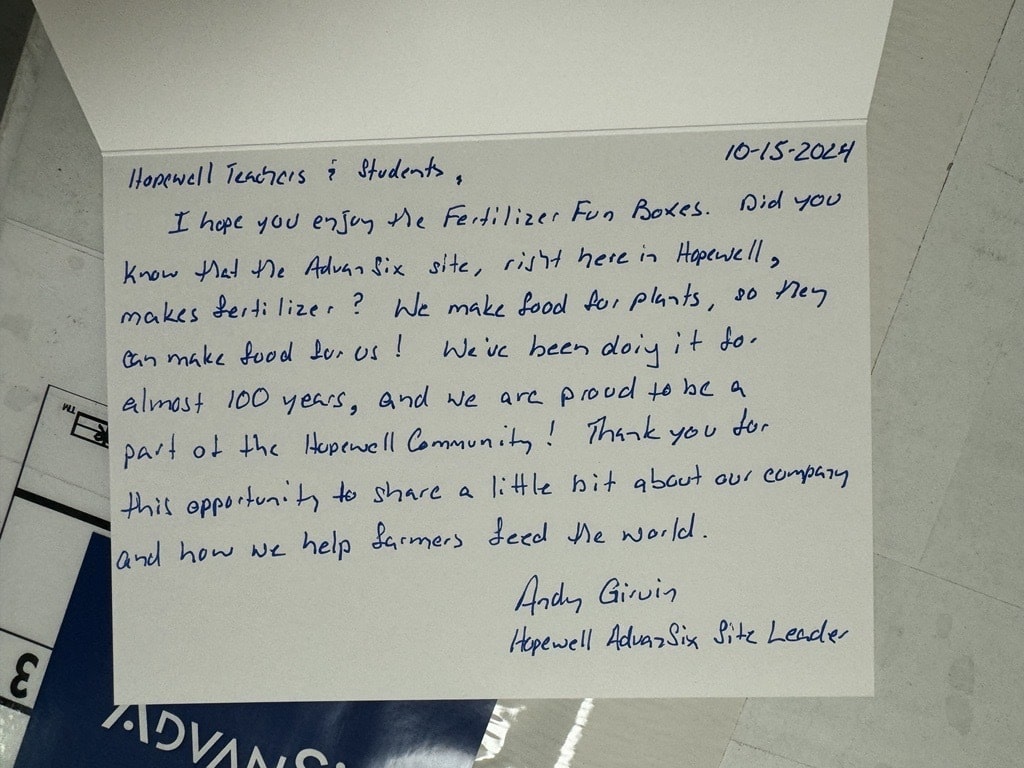 10-15-2024
Hopewell Teachers & Students,
I hope you enjoy the Fertilizer Fun Boxes. Did you
know that the AdvanSix site, right here in Hopewell,
makes fertilizer? We make food for plants, so they
can make food for us! We've been doing it for
almost 100 years, and we are proud to be a
part of the Hopewell Community! Thank you for
this opportunity to share a little bit about our company
and how we help farmers feed the world.
Andy Girvin
Hopewell AdvanSix Site Leader
TM
3